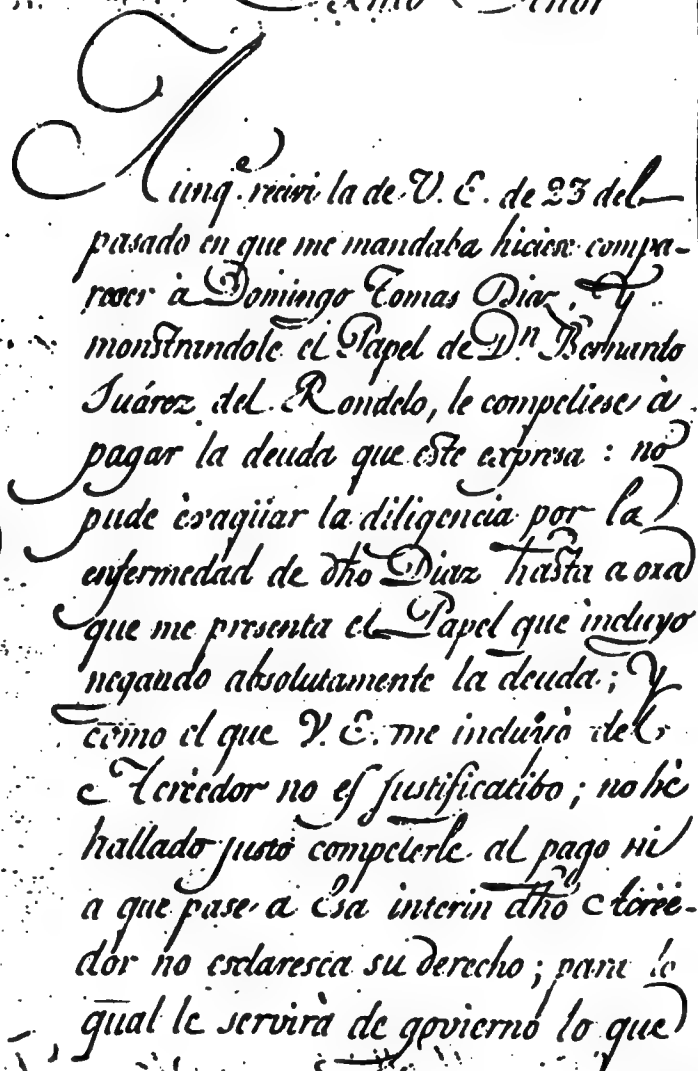 Exmo Señor
Aunq.e recivi la de V. E. de 23 del
pasado en que me mandaba hiciese compa-
recer à Domingo Tomas Diaz, Y
monstrandole el Papel de Dn Bernardo
Suárez del Rondelo, le compeliese à
pagar la deuda que este expresa: no
pude èvaqüar la diligencia por la
enfermedad de dho Diaz hasta aora
que me presenta el Papel que incluyo
negando absolutamente la deuda; Y
como el que V. E. me incluyò del
Acreedor no es justificatibo; no hè
hallado justo compelerle al pago ni
a que pase a Esa interin dho Acree-
dor no esclaresca su derecho; para lo
qual le servirà de govierno lo que